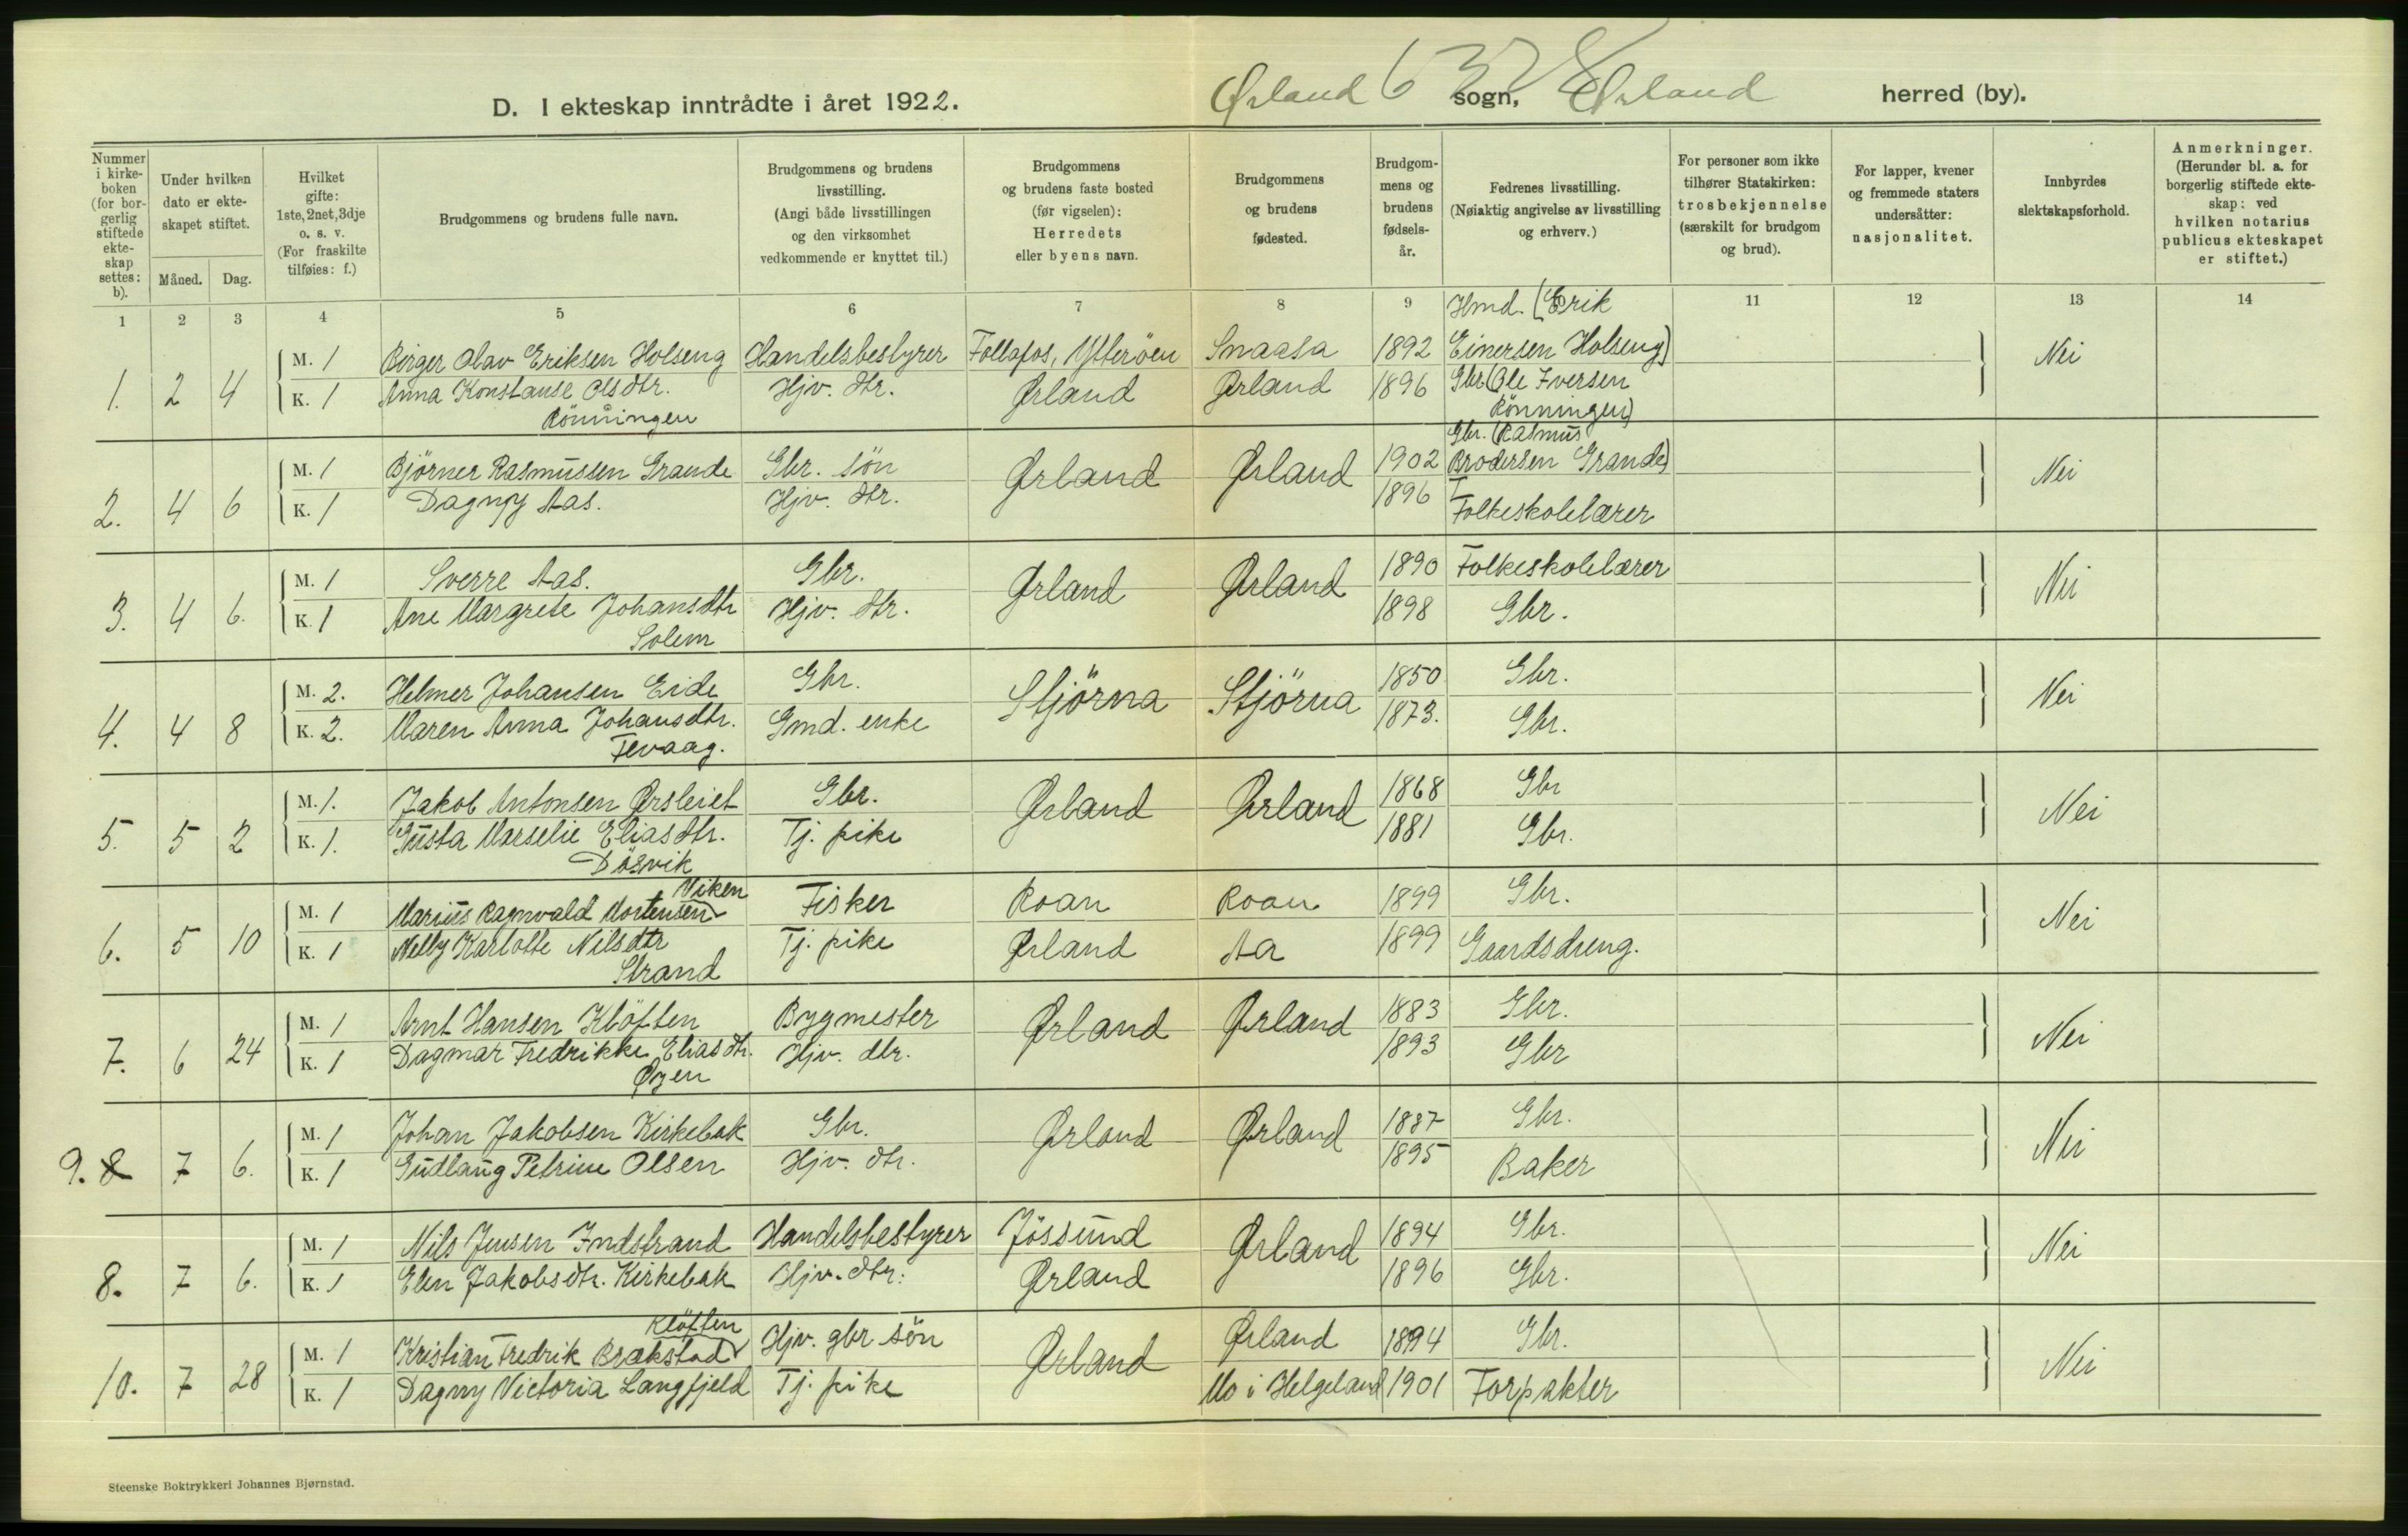 D. I ekteskap inntrådte i året 1922. Ørland sogn, Ørland herred (by).
Nummer i kirkeboken (for borgerlig stiftede ekteskap settes: b).
Under hvilken dato er ekteskapet stiftet.
Måned. Dag.
Hvilket gifte: 1ste, 2net, 3dje o. s. v. (For fraskilte tilføies: f.)
Brudgommens og brudens fulle navn.
Brudgommens og brudens livsstilling. (Angi både livsstillingen og den virksomhet vedkommende er knyttet til.)
Brudgommens og brudens faste bosted (før vigselen): Herredets eller byens navn.
Brudgommens og brudens fødested.
Brudgommens og brudens fødselsår.
Fedrenes livsstilling. (Nøiaktig angivelse av livsstilling og erhverv.)
For personer som ikke tilhører Statskirken: trosbekjennelse (særskilt for brudgom og brud).
For lapper, kvener og fremmede staters undersåtter: nasjonalitet.
Innbyrdes slektskapsforhold.
Anmerkninger. (Herunder bl. a. for borgerlig stiftede ekteskap: ved hvilken notarius publicus ekteskapet er stiftet.)
1 2 3 4 5 6 7 8 9 11 12 13 14
Hmd. (Erik
M. 1 Birger Olav Eriksen Holseng Handelsbestyrer Follafos, Ytteröen Snaasa 1892 Einersen Holseng) Nei
1. 2 4 K. 1 Anna Konstanse Olsdtr. Hjv. dtr. Ørland Ørland 1896 Gbr. (Ole Iversen
Rönningen Rönningen)
Gbr. (Rasmus
M. 1 Björner Rasmussen Grande Gbr. sön Ørland Ørland 1902 Brodersen Grande) Nei
2. 4 6 K. 1 Dagny Aas. Hjv. dtr. 1896 Folkeskolelærer
M. 1 Sverre Aas. Gbr. Ørland Ørland 1890 Folkeskolelærer Nei
3. 4 6. K. 1 Ane Margrete Johansdtr Hjv. dtr. 1898 Gbr.
Solem
M. 2. Helmer Johansen Eide Gbr. Stjörna Stjörna 1850 Gbr. Nei
4. 4 8 K. 2. Maren Anna Johansdtr. Gmd. enke 1873. Gbr.
Fevaag.
M. 1. Jakob Antonsen Ørsleiet Gbr. Ørland Ørland 1868 Gbr Nei
5. 5 2 K. 1. Gusta Marselie Eliasdtr. Tj. pike 1881 Gbr.
Dösvik
Viken
M. 1 Marius Ragnvald Mortensen Fisker Roan Roan 1899 Gbr. Nei
6. 5 10 K. 1 Nelly Karlotte Nilsdtr Tj. pike Ørland Aa 1899 Gaardsdreng.
Strand
M. 1 Arnt Hansen Klöften Bygmester Ørland Ørland 1883 Gbr. Nei
7. 6 24 K. 1 Dagmar Fredrikke Eliasdtr. Hjv. dtr. 1893 Gbr
Øyen
M. 1 Johan Jakobsen Kirkebak Gbr. Ørland Ørland 1887 Gbr. Nei
9. 8 7 6. K. 1 Gudlaug Petrine Olsen Hjv. dtr. 1895 Baker
M. 1 Nils Jensen Indstrand Handelsbestyrer Jössund Ørland 1894 Gbr. Nei
8. 7 6. K. 1 Elen Jakobsdtr. Kirkebak Hjv. dtr. Ørland 1896 Gbr.
Klöften
M. 1 Kristian Fredrik Brækstad Hjv. gbr sön Ørland Ørland 1894 Gbr. Nei
10. 7 28 K. 1 Dagny Victoria Langfjeld Tj. pike Mo i Helgeland 1901 Forpakter
Steenske Boktrykkeri Johannes Bjørnstad.